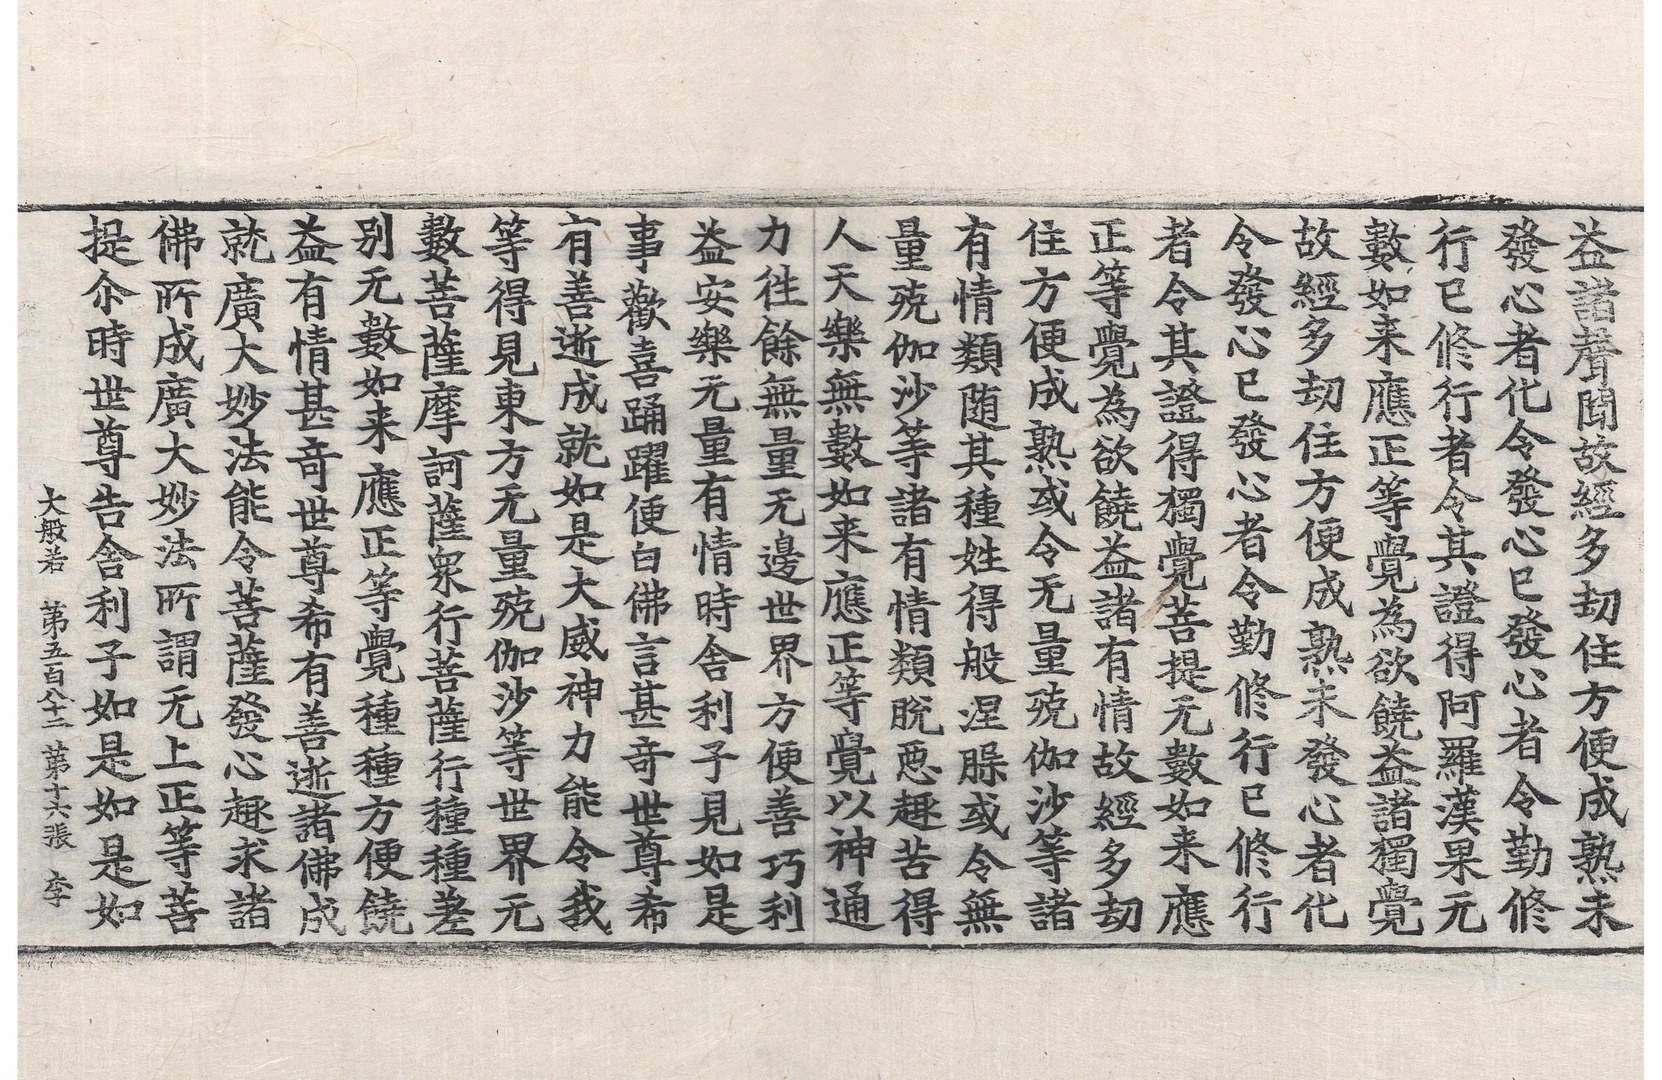 益諸聲聞故經多劫住方便成熟未
發心者化令發心已發心者令勤修
行已修行者令其證得阿羅漢果无
數如来應正等覺為欲饒益諸獨覺
故經多劫住方便成熟未發心者化
令發心已發心者令勤修行已修行
者令其證得獨覺菩提无數如来應
正等覺為欲饒益諸有情故經多劫
住方便成熟或令无量殑伽沙等諸
有情類随其種姓得般涅槃或令無
量殑伽沙等諸有情類脫惡趣苦得
人天樂無數如来應正等覺以神通
力往餘無量无邊世界方便善巧利
益安樂无量有情時舍利子見如是
事歡喜踊躍便白佛言甚奇世尊希
有善逝成就如是大威神力能令我
等得見東方无量殑伽沙等世界无
數菩薩摩訶薩衆行菩薩行種種差
別无數如来應正等覺種種方便饒
益有情甚奇世尊希有善逝諸佛成
就廣大妙法能令菩薩發心趣求諸
佛所成廣大妙法所謂无上正等菩
提尒時世尊告舍利子如是如是如
大般若 第五百八十二 第十六張 李